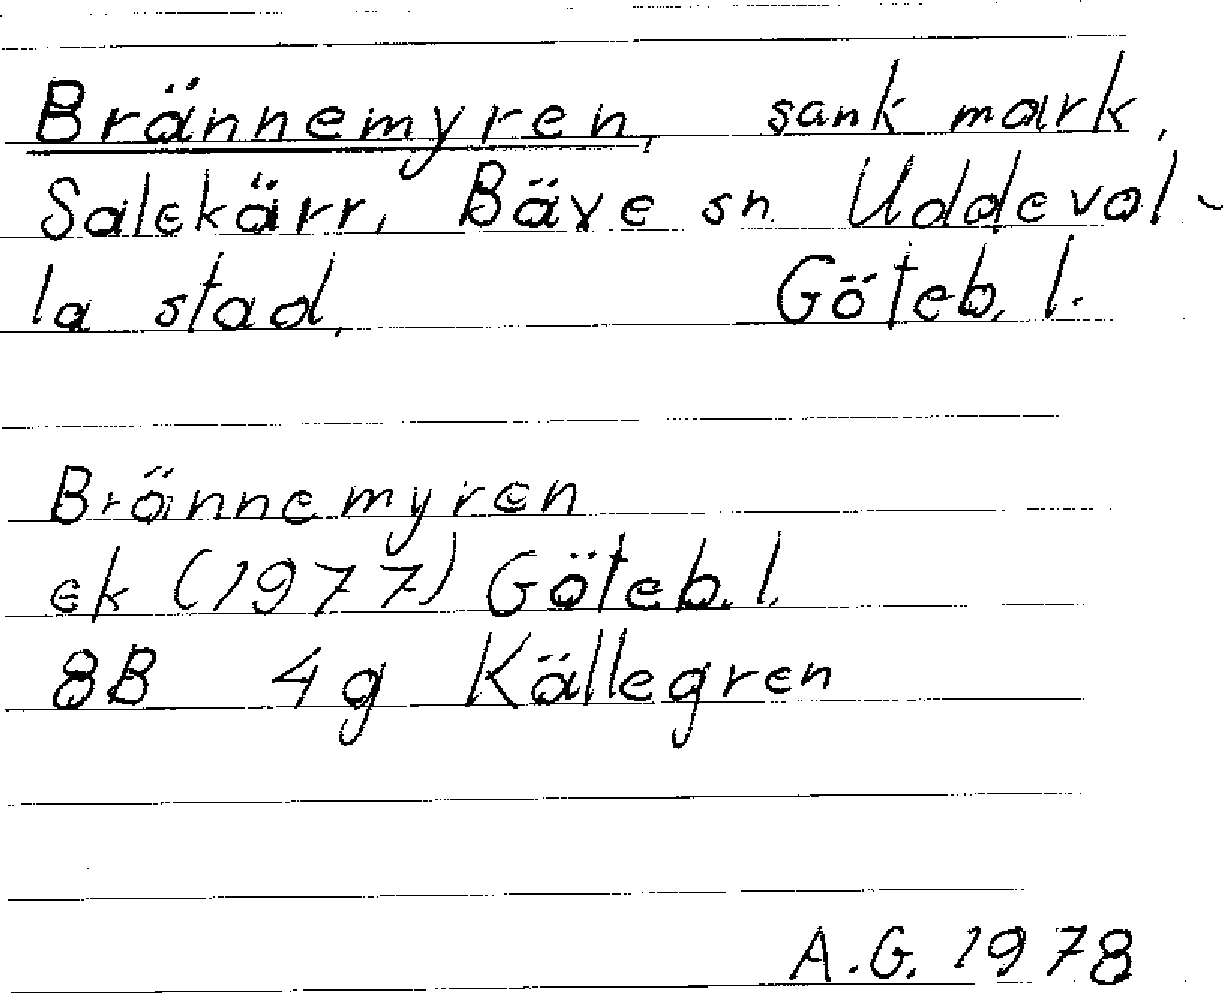 Brännemyren, sank mark,
Salekärr, Bäve sn. Uddeval-
la stad, Göteb. l.
Brännemyren
ek (1977) Göteb. l.
8B 4g Källegren
A.G. 1978